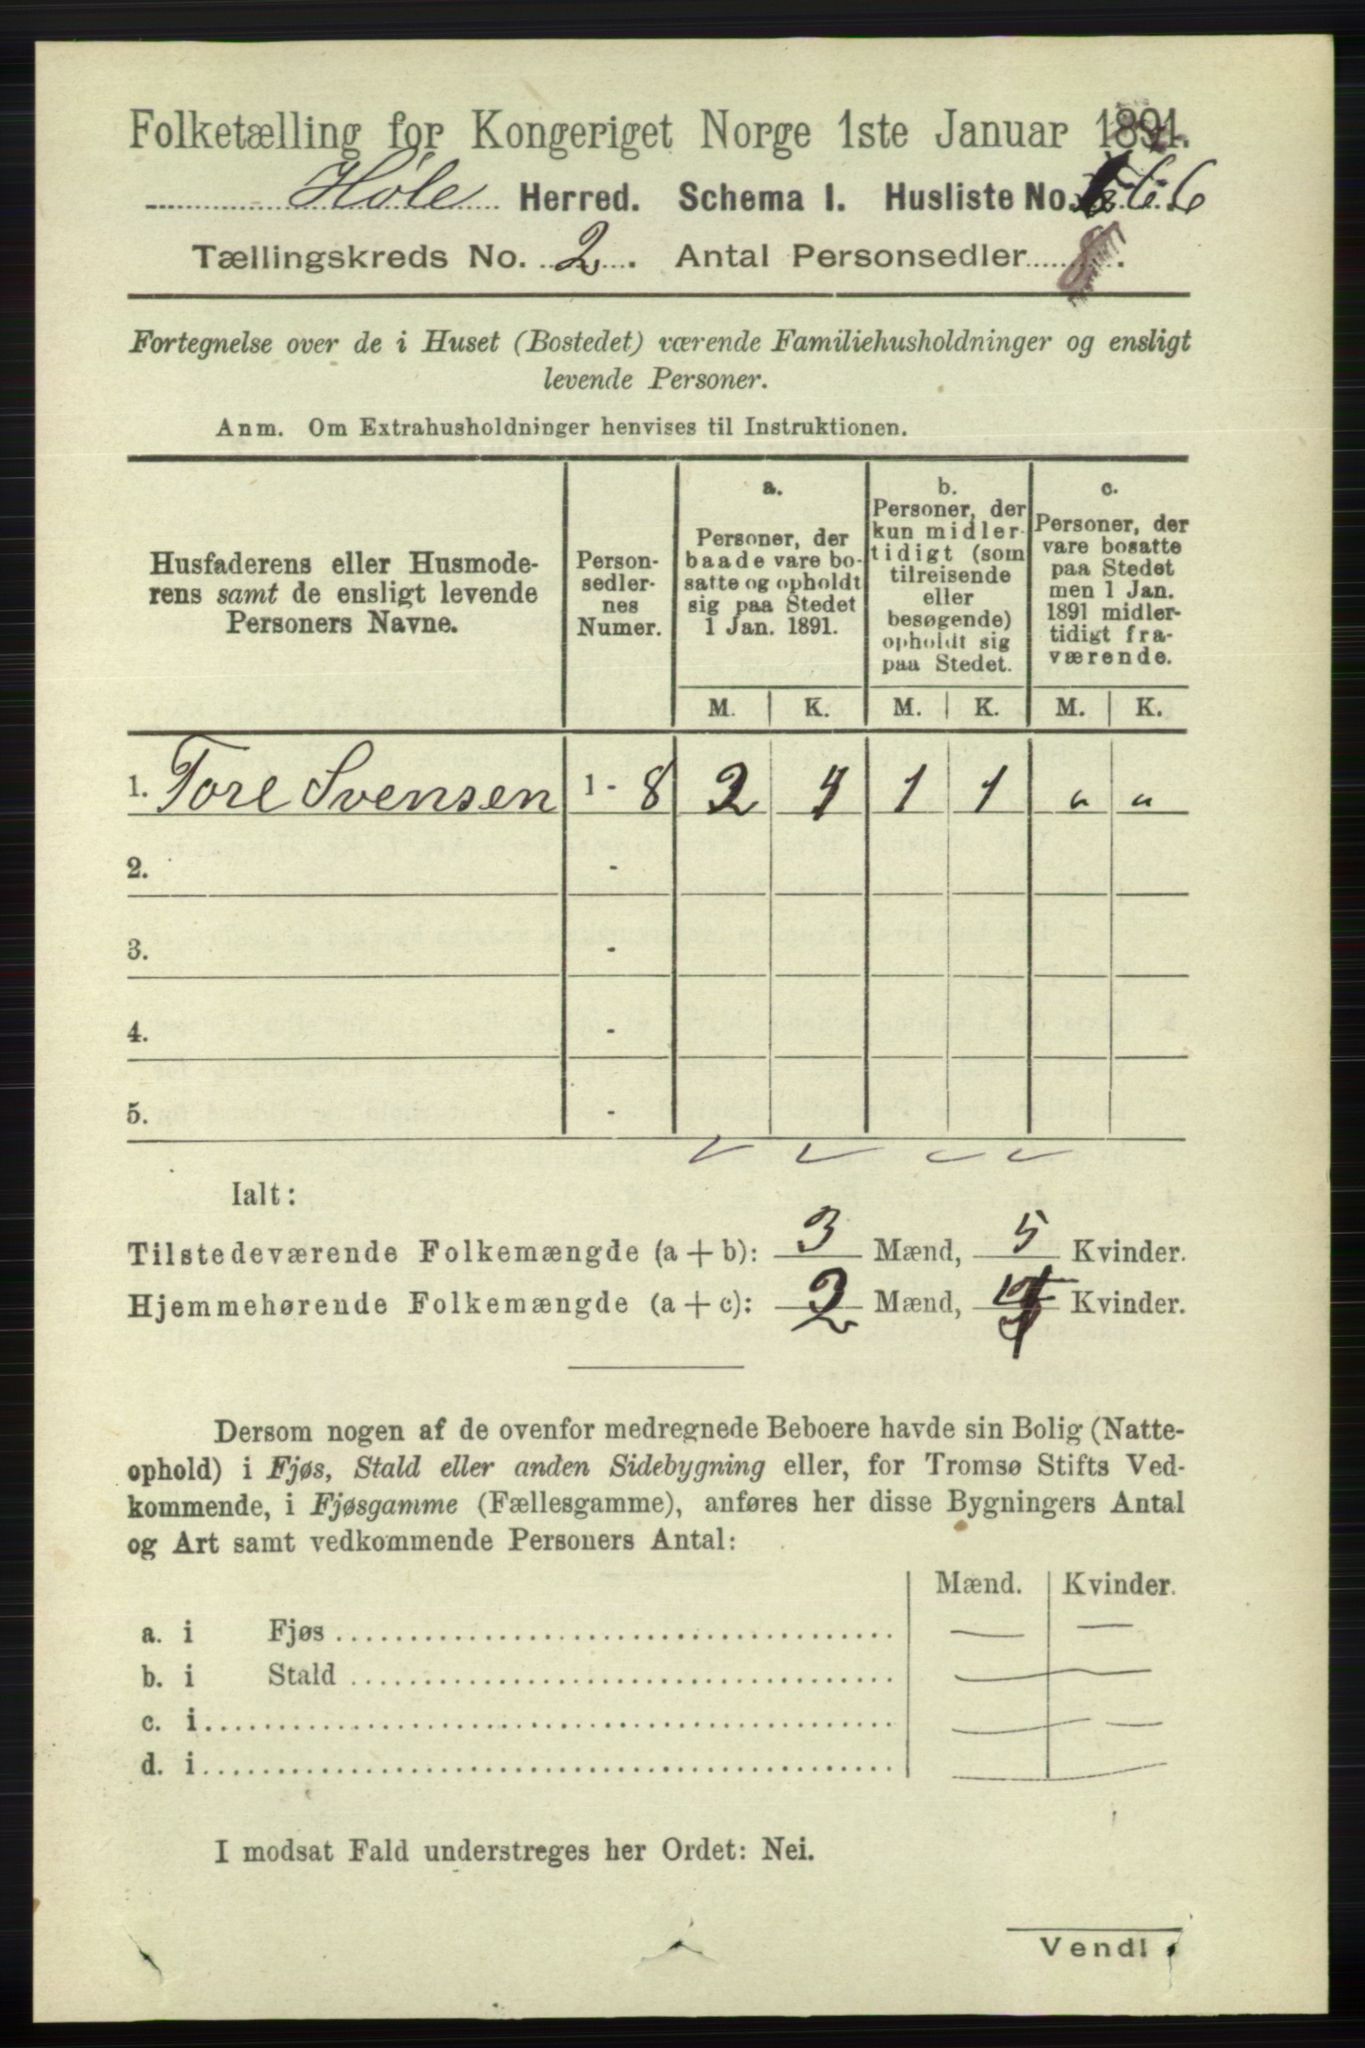 Folketælling for Kongeriget Norge 1ste Januar 1891.
Høle Herred. Schema I. Husliste No. 66
Tællingskreds No. 2. Antal Personsedler 8.
Fortegnelse over de i Huset (Bostedet) værende Familiehusholdninger og ensligt
levende Personer.
Anm. Om Extrahusholdninger henvises til Instruktionen.
Husfaderens eller Husmode-
rens samt de ensligt levende
Personers Navne.
Person-
sedler-
nes
Numer.
a.
Personer, der
baade vare bo-
satte og opholdt
sig paa Stedet
1 Jan. 1891.
b.
Personer, der
kun midler-
tidigt (som
tilreisende
eller
besøgende)
opholdt sig
paa Stedet.
c.
Personer, der
vare bosatte
paa Stedet
men 1 Jan.
1891 midler-
tidigt fra-
værende.
M. K. M. K. M. K.
1. Tore Svensen 1 - 8 2 4 1 1 " "
2. -
3. -
4. -
5. -
Ialt:
Tilstedeværende Folkemængde (a + b): 3 Mænd, 5 Kvinder.
Hjemmehørende Folkemængde (a + c): 2 Mænd, 4 Kvinder.
Dersom nogen af de ovenfor medregnede Beboere havde sin Bolig (Natte-
ophold) i Fjøs, Stald eller anden Sidebygning eller, for Tromsø Stifts Ved-
kommende, i Fjøsgamme (Fællesgamme), anføres her disse Bygningers Antal
og Art samt vedkommende Personers Antal:
Mænd. Kvinder.
a. i Fjøs — —
b. i Stald — —
c. i — —
d. i — —
I modsat Fald understreges her Ordet: Nei.
Vend!